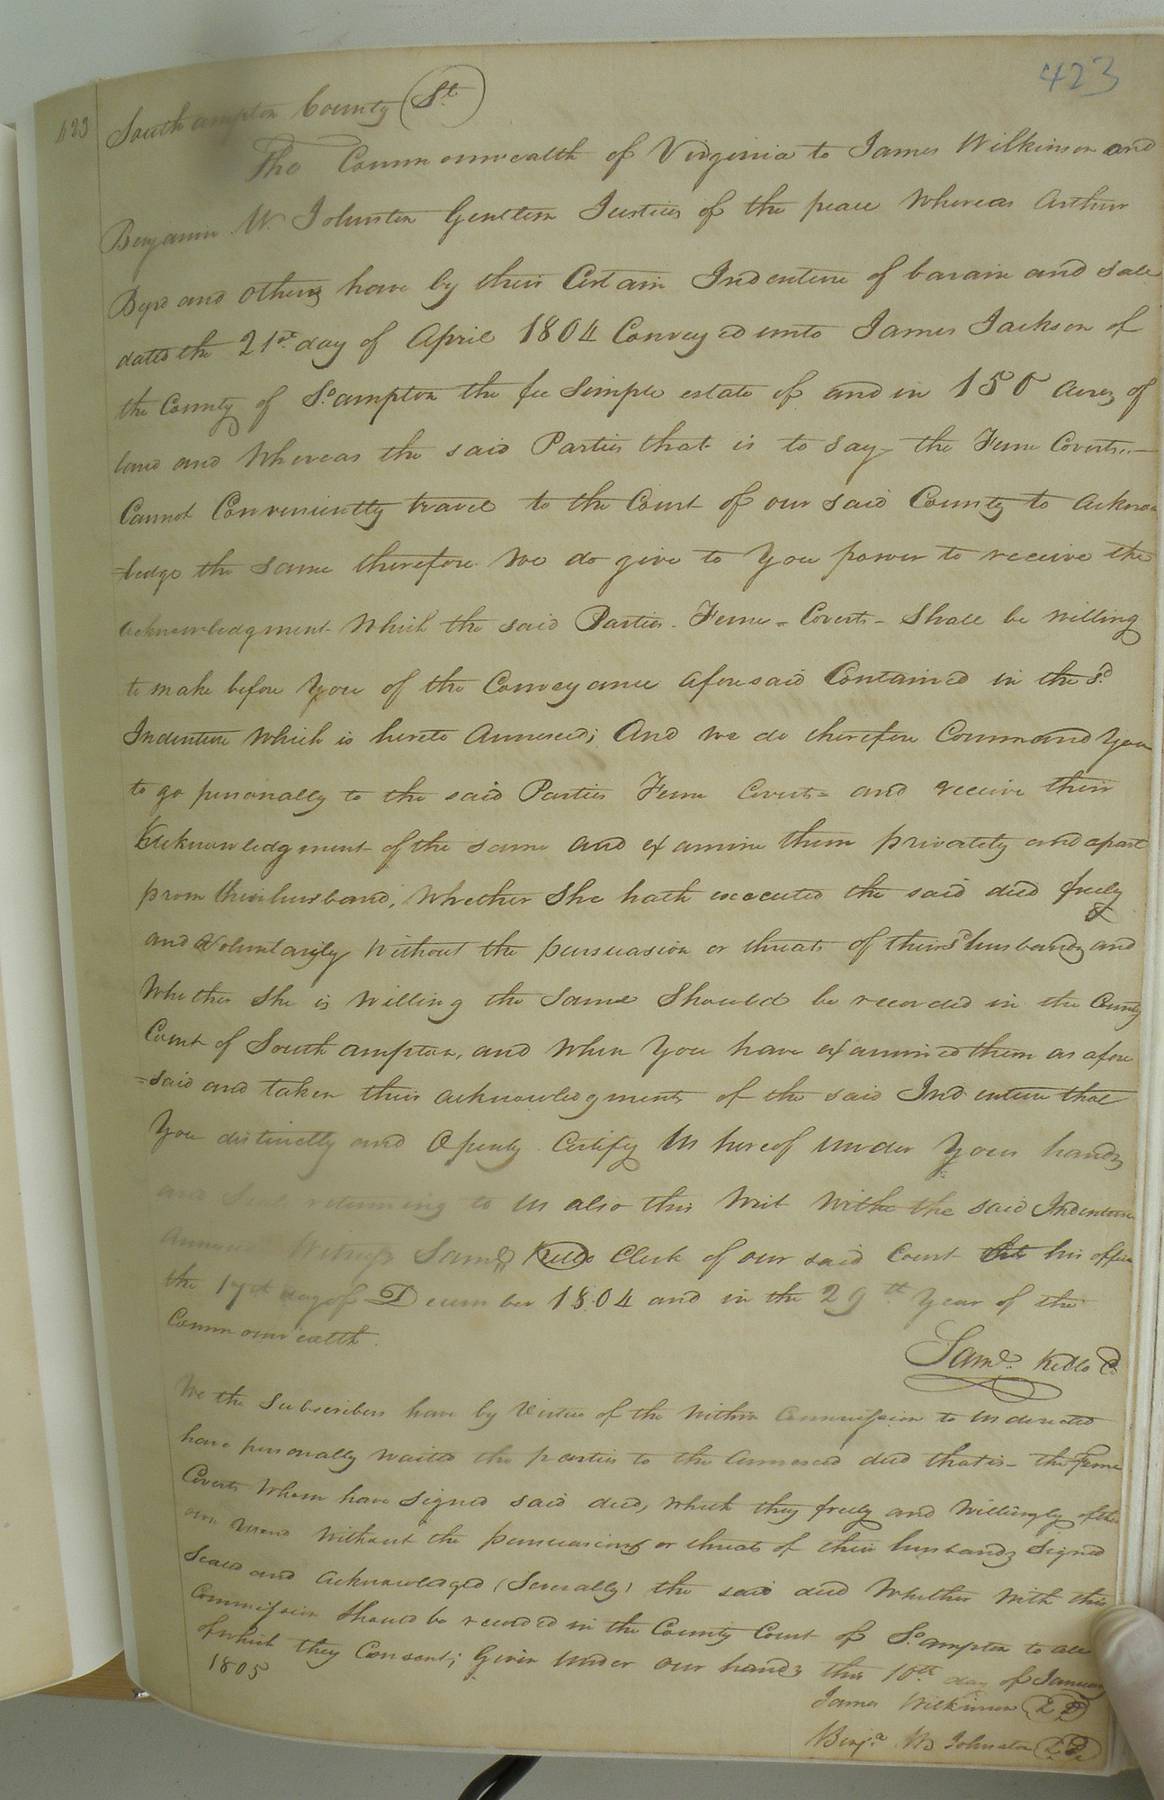 423
423
Southampton County (St.)
The Commonwealth of Virginia to James Wilkinson and
Benjamin W. Johnston Gentlem Justices of the peace Whereas Arthur
Byrd and others have by their Certain Indenture of barain and sale
dated the 21st day of April 1804 Conveyed unto James Jackson of
the County of So.ampton the fee Simple estate of and in 150 Acres of
land and Whereas the said Parties that is to say the Feme Coverts..—
Cannot Conveniently travel to the Court of our said County to Acknow
=ledge the same therefore We do give to You power to receive the
acknowledgment Which the said Parties - Feme = Coverts - Shall be willing
to make before You of the Conveyance aforesaid Contained in the sd.
Indenture Which is hereto Annexed; And we do therefore Command You
to go personally to the said Parties Feme Coverts = and receive their
Acknowledgment of the same and examine them privately and apart
from their husband, Whether She hath executed the said deed freely
and Voluntarily Without the persuasion or threats of their sd husbands and
Whether She is Willing the Same Should be recorded in the County
Court of Southampton, and When You have examined them as afore
=said and taken their acknowledgments of the said Indenture that
You distinctly and Openly Certify Us hereof under Your hands
and Seals returning to us also this Writ With the said Indenture
Annexed Witness Saml. Kello Clerk of our said Court At his office
the 17th day of December 1804 and in the 29th Year of the
Commonwealth.
Saml. Kello C.
We the Subscribers have by Virtue of the Within Commission to us directed
have personally waited the parties to the Annexed deed that is - the Feme
Coverts Whom have Signed said deed, which they freely and Willingly of their
own Mind Without the persuasions or threats of their husbands Signed
Sealed and Acknowledged (Severally) the said deed Whether With this
Commission Should be recorded in the County Court of So.ampton to all
of which they Consent; Given Under our hands this 10th day of January
1805
James Wilkinson (L S)
Benja. W Johnston (L S)